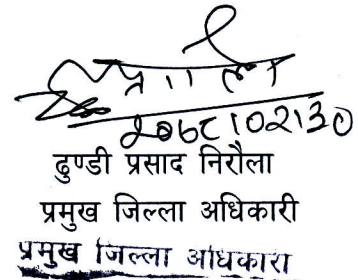 २०६८।०२।३०
ढुण्डी प्रसाद निरौला
प्रमुख जिल्ला अधिकारी
प्रमुख जिल्ला अधिकारी